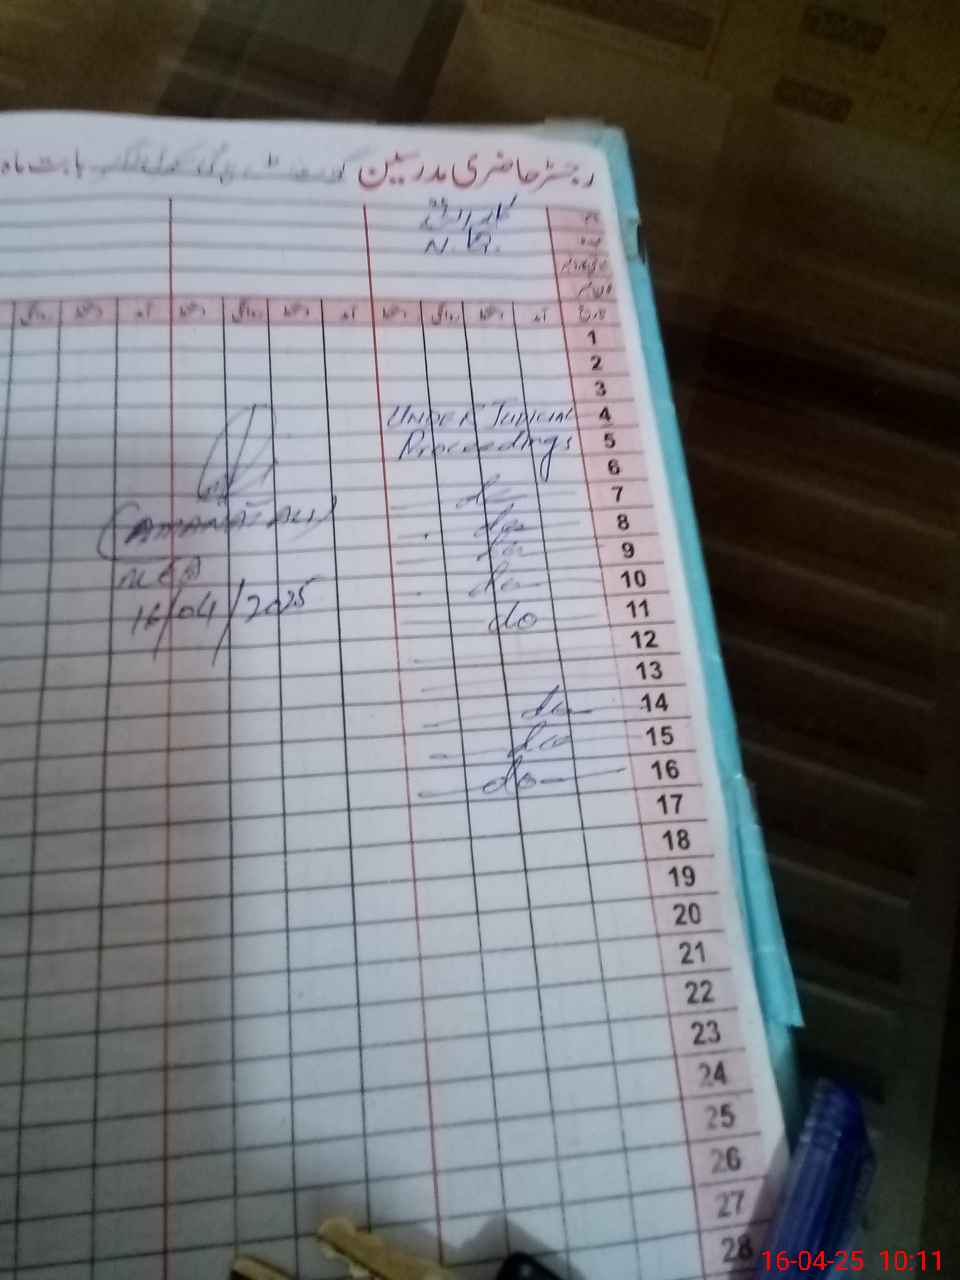 رجسٹر حاضری مدرسین گورنمنٹ بابت ماہ
نام
عہدہ
N.Q.
تاریخ آمد دستخط روانگی دستخط آمد دستخط روانگی دستخط آمد دستخط روانگی
1
2
3
UNDER JUDICIAL 4
Proceedings 5
6
do 7
do 8
do 9
do 10
do 11
12
13
do 14
do 15
do 16
(AMANAT ALI)
16/04/2025
17
18
19
20
21
22
23
24
25
26
27
28
16-04-25 10:11